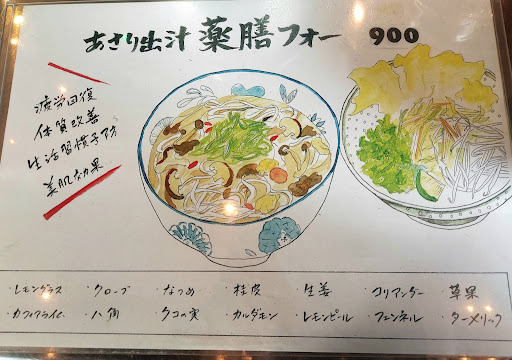 あさり出汁 薬膳フォー 900
疲労回復
体質改善
生活習慣予防
美肌効果
・レモングラス ・クローブ ・なつめ ・桂皮 ・生姜 ・コリアンダー ・草果
・カフィアライム ・八角 ・クコの実 ・カルダモン ・レモンピール ・フェンネル ・ターメリック